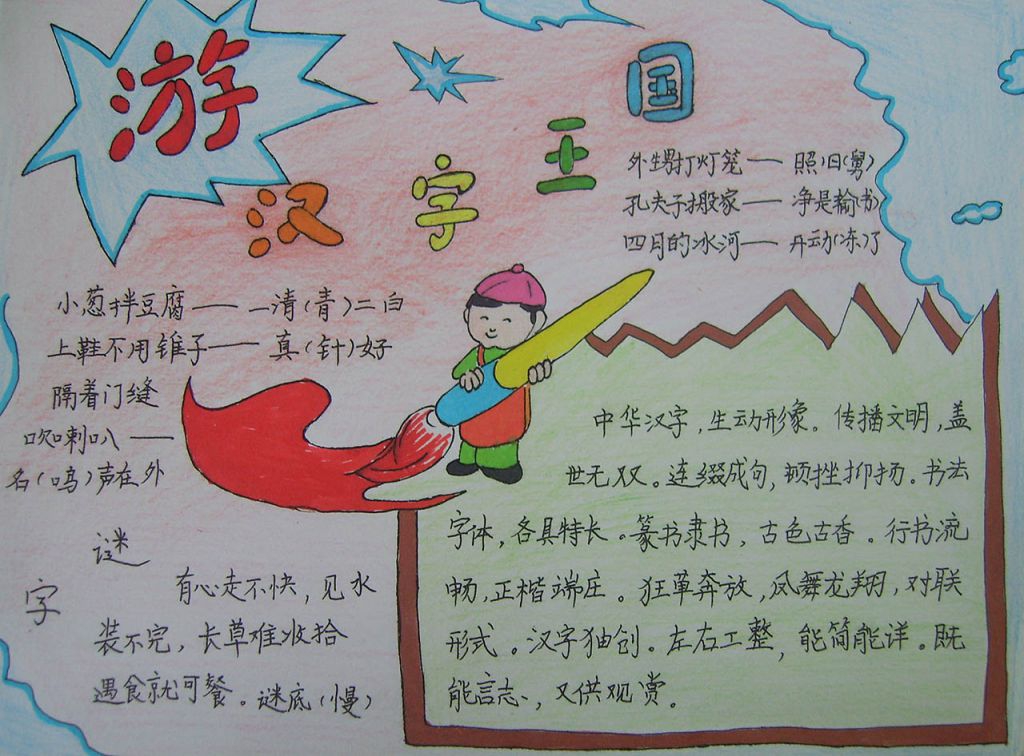 游汉字王国
外甥打灯笼——照旧(舅)
孔夫子搬家——净是输(书)
四月的冰河——开动(冻)了
小葱拌豆腐——一清(青)二白
上鞋不用锥子——真(针)好
隔着门缝
吹喇叭——
名(鸣)声在外
中华汉字,生动形象。传播文明,盖
世无双。连缀成句,顿挫抑扬。书法
字体,各具特长。篆书隶书,古色古香。行书流
畅,正楷端庄。狂草奔放,凤舞龙翔,对联
形式。汉字独创。左右工整,能简能详。既
能言志,又供观赏。
字谜
有心走不快,见水
装不完,长草难收拾
遇食就可餐。谜底(慢)